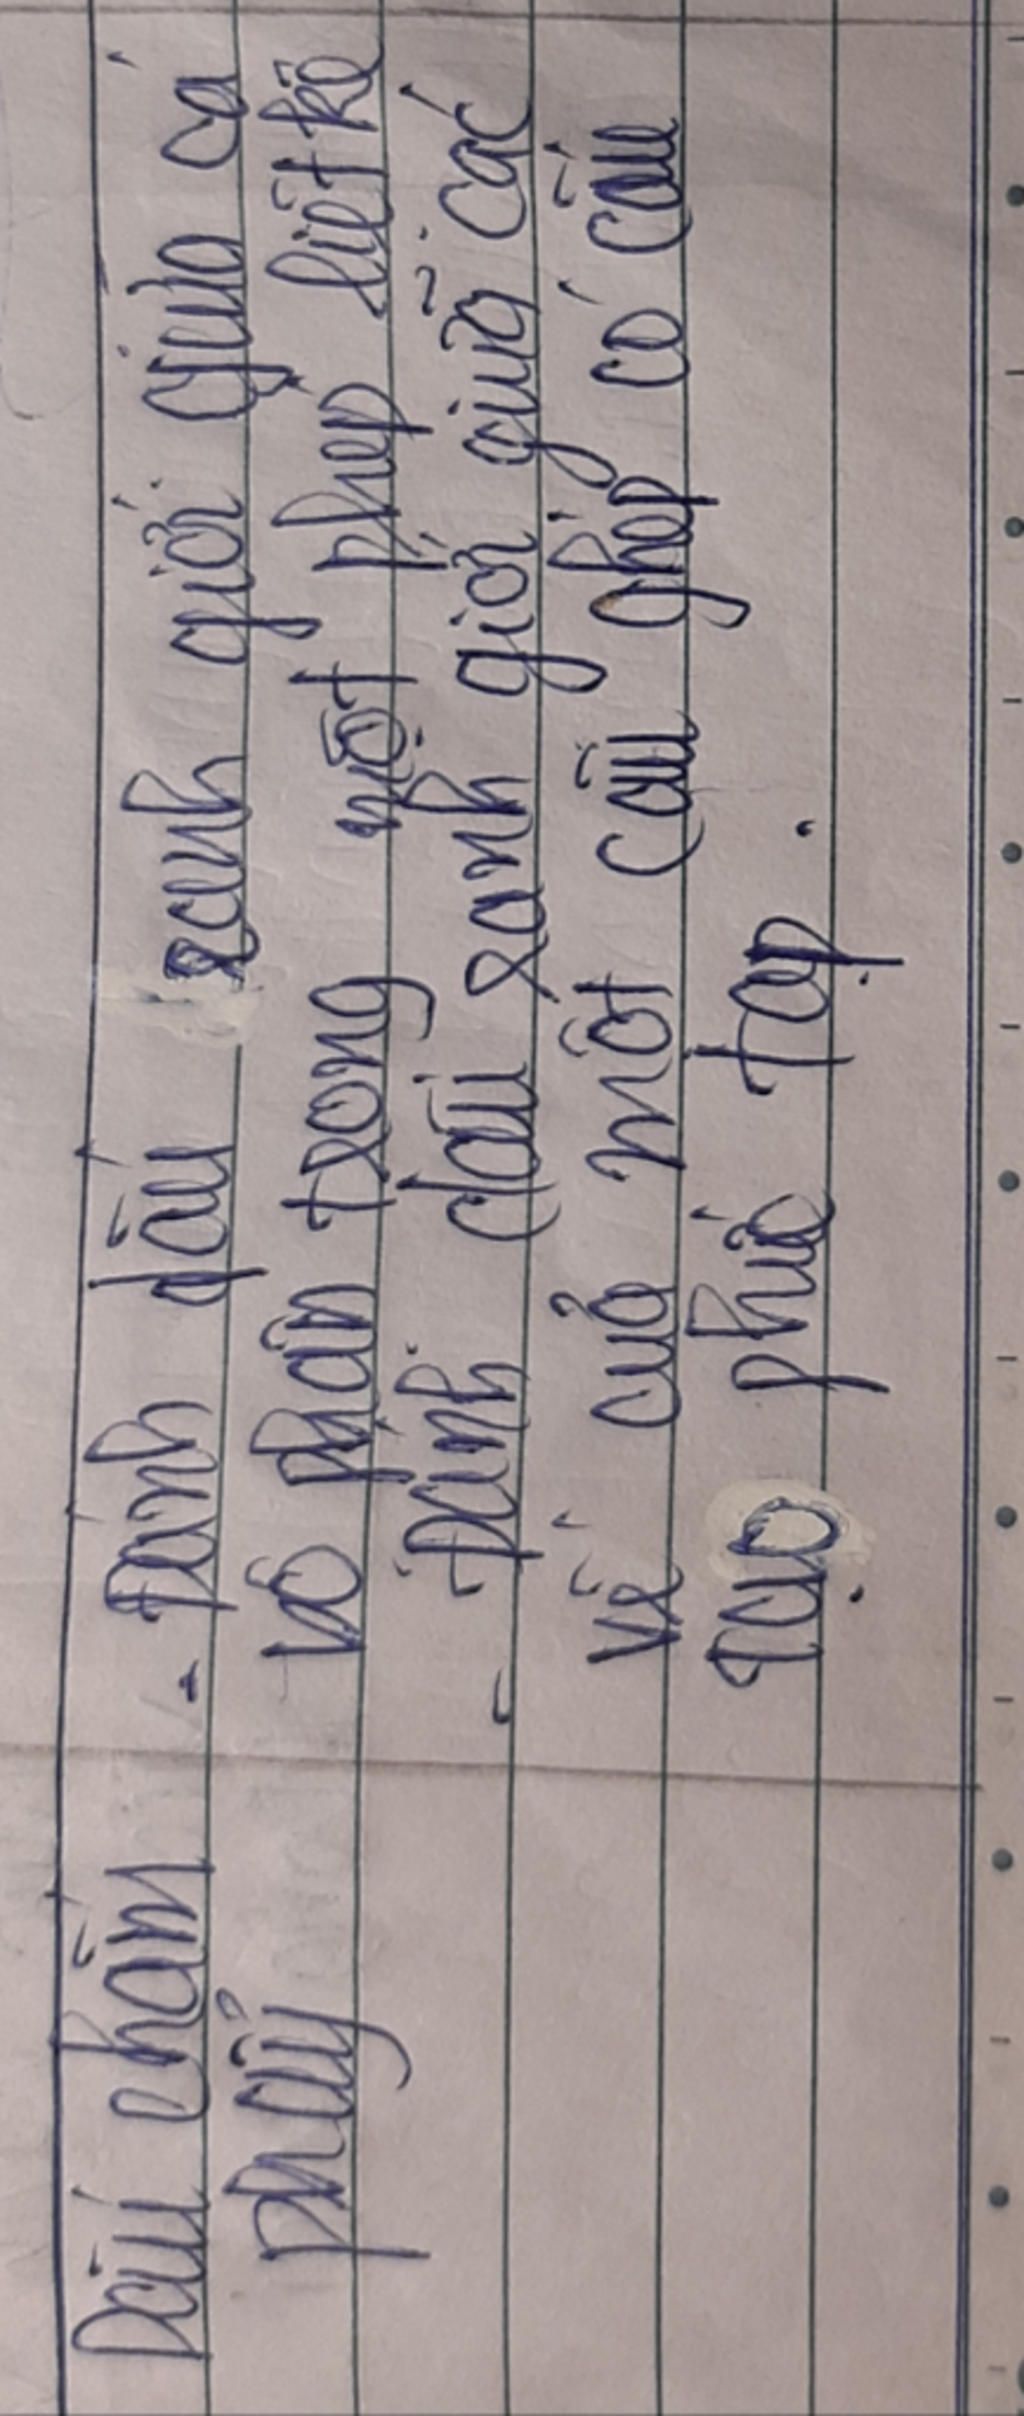 Dấu chấm phẩy
- Đánh dấu ranh giới giữa cá
bộ phận trong một phép liệt kê
- Đánh dấu ranh giới giữa các
vế của một câu ghép có cấu
tạo phức tạp.